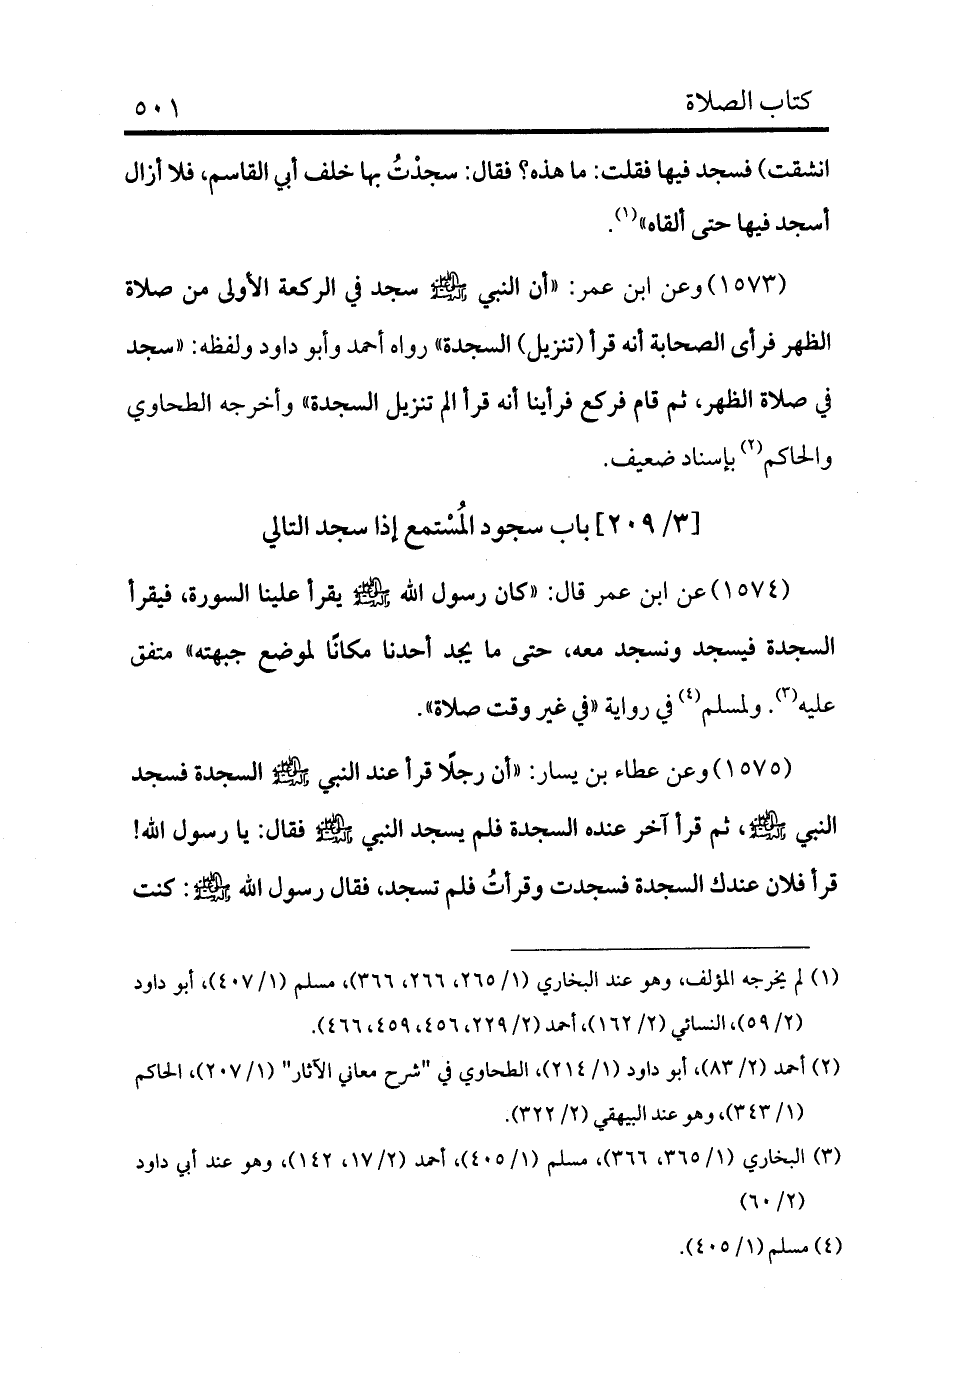 كتاب الصلاة ٥٠١
انشقت) فسجد فيها فقلت: ما هذه؟ فقال: سجدْتُ بها خلف أبي القاسم، فلا أزال
أسجد فيها حتى ألقاه»(١).
(١٥٧٣) وعن ابن عمر: «أن النبي ﷺ سجد في الركعة الأولى من صلاة
الظهر فرأى الصحابة أنه قرأ (تنزيل) السجدة» رواه أحمد وأبو داود ولفظه: «سجد
في صلاة الظهر، ثم قام فركع فرأينا أنه قرأ الم تنزيل السجدة» وأخرجه الطحاوي
والحاكم(٢) بإسناد ضعيف.
[٣/ ٢٠٩] باب سجود المُسْتمع إذا سجد التالي
(١٥٧٤) عن ابن عمر قال: «كان رسول الله ﷺ يقرأ علينا السورة، فيقرأ
السجدة فيسجد ونسجد معه، حتى ما يجد أحدنا مكانًا لموضع جبهته» متفق
عليه(٣). ولمسلم(٤) في رواية «في غير وقت صلاة».
(١٥٧٥) وعن عطاء بن يسار: «أن رجلًا قرأ عند النبي ﷺ السجدة فسجد
النبي ﷺ، ثم قرأ آخر عنده السجدة فلم يسجد النبي ﷺ فقال: يا رسول الله!
قرأ فلان عندك السجدة فسجدت وقرأتُ فلم تسجد، فقال رسول الله ﷺ: كنت
(١) لم يخرجه المؤلف، وهو عند البخاري (١/ ٢٦٥، ٢٦٦، ٣٦٦)، مسلم (١/ ٤٠٧)، أبو داود
(٢/ ٥٩)، النسائي (٢/ ١٦٢)، أحمد (٢/ ٢٢٩، ٤٥٦، ٤٥٩، ٤٦٦).
(٢) أحمد (٢/ ٨٣)، أبو داود (١/ ٢١٤)، الطحاوي في "شرح معاني الآثار" (١/ ٢٠٧)، الحاكم
(١/ ٣٤٣)، وهو عند البيهقي (٢/ ٣٢٢).
(٣) البخاري (١/ ٣٦٥، ٣٦٦)، مسلم (١/ ٤٠٥)، أحمد (٢/ ١٧، ١٤٢)، وهو عند أبي داود
(٢/ ٦٠)
(٤) مسلم (١/ ٤٠٥).